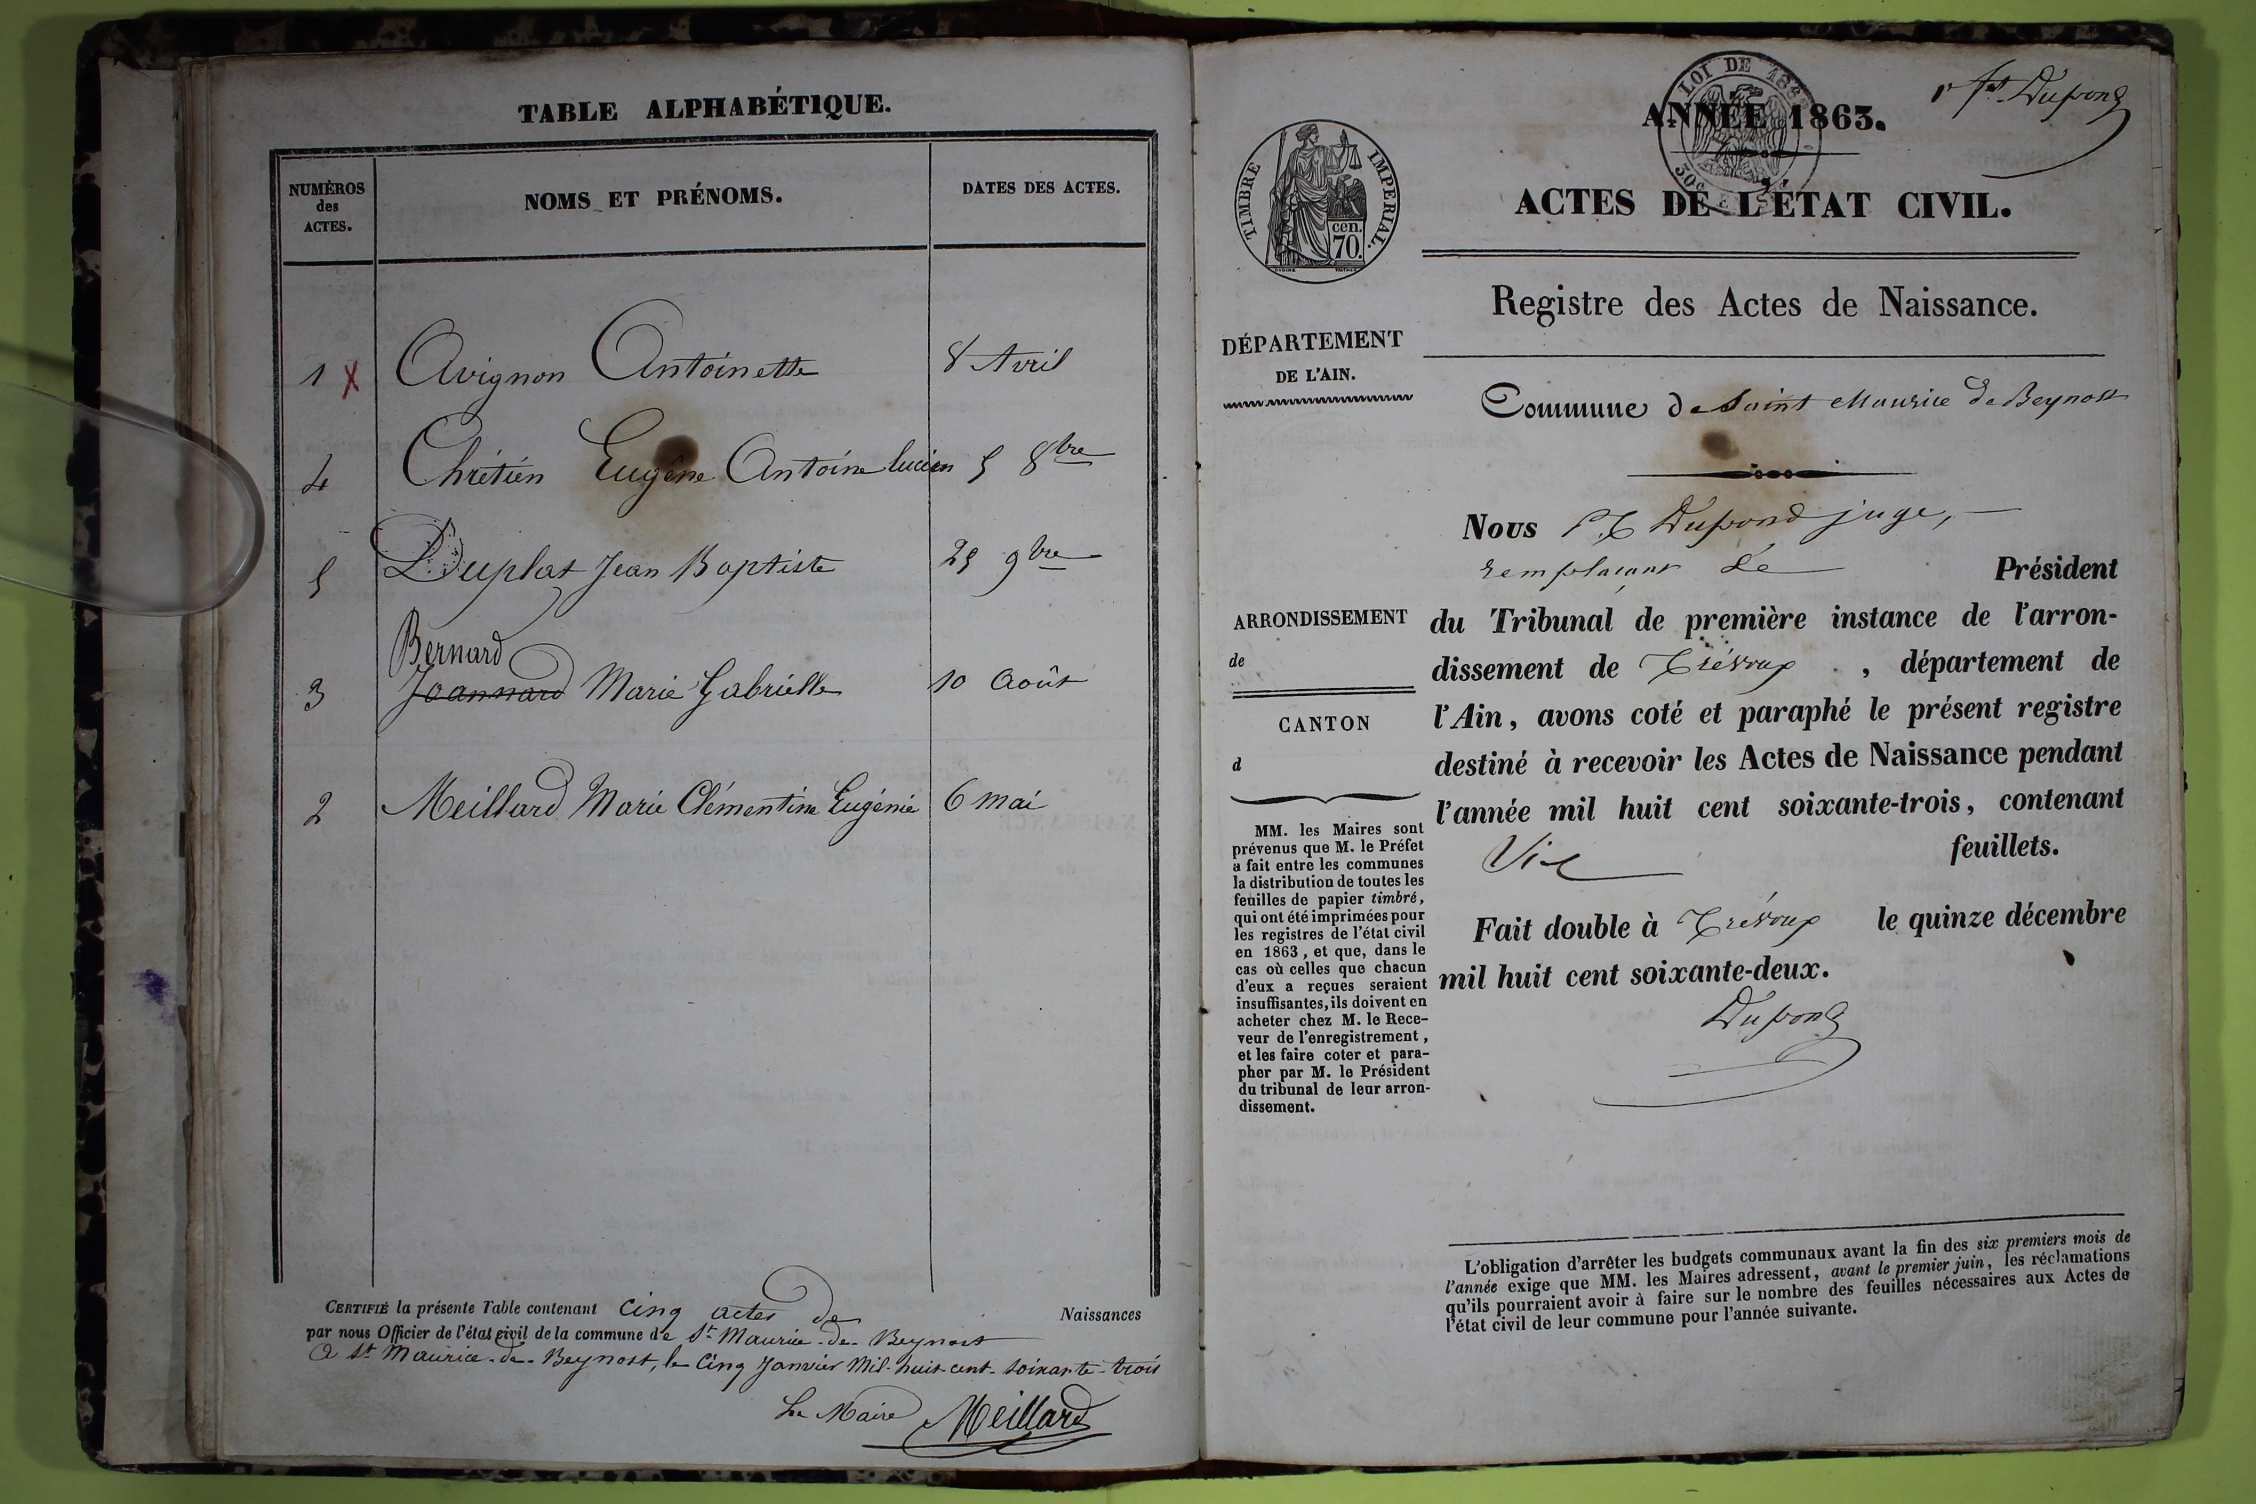 TABLE ALPHABÉTIQUE.
NUMÉROS
des
ACTES.
NOMS ET PRÉNOMS.
DATES DES ACTES.
1 X Avignon Antoinette 8 Avril
4 Chrétien Eugène Antoine lucien 5 8bre
5 Duplat Jean Baptiste 25 9bre
Bernard
3 Joannard Marie Gabrielle 10 Août
2 Meillard Marie Clémentine Eugénie 6 mai
CERTIFIÉ la présente Table contenant Cinq actes de Naissances
par nous Officier de l'état civil de la commune de St Maurice-de-Beynost
A St Maurice-de-Beynost, le Cinq Janvier Mil-huit-cent-soixante-trois
Le Maire Meillard
Dupond
LOI DE
ANNÉE 1863.
ACTES DE L'ÉTAT CIVIL.
TIMBRE IMPERIAL.
cen.
70.
Registre des Actes de Naissance.
DÉPARTEMENT
DE L'AIN.
Commune de Saint Maurice de Beynost
Nous Dupond juge,
remplaçant le Président
ARRONDISSEMENT
de
CANTON
d
du Tribunal de première instance de l'arron-
dissement de Trévoux , département de
l'Ain, avons coté et paraphé le présent registre
destiné à recevoir les Actes de Naissance pendant
l'année mil huit cent soixante-trois, contenant
feuillets.
Fait double à Trévoux le quinze décembre
mil huit cent soixante-deux.
Dupond
MM. les Maires sont
prévenus que M. le Préfet
a fait entre les communes
la distribution de toutes les
feuilles de papier timbré,
qui ont été imprimées pour
les registres de l'état civil
en 1863, et que, dans le
cas où celles que chacun
d'eux a reçues seraient
insuffisantes, ils doivent en
acheter chez M. le Rece-
veur de l'enregistrement,
et les faire coter et para-
pher par M. le Président
du tribunal de leur arron-
dissement.
L'obligation d'arrêter les budgets communaux avant la fin des six premiers mois de
l'année exige que MM. les Maires adressent, avant le premier juin, les réclamations
qu'ils pourraient avoir à faire sur le nombre des feuilles nécessaires aux Actes de
l'état civil de leur commune pour l'année suivante.